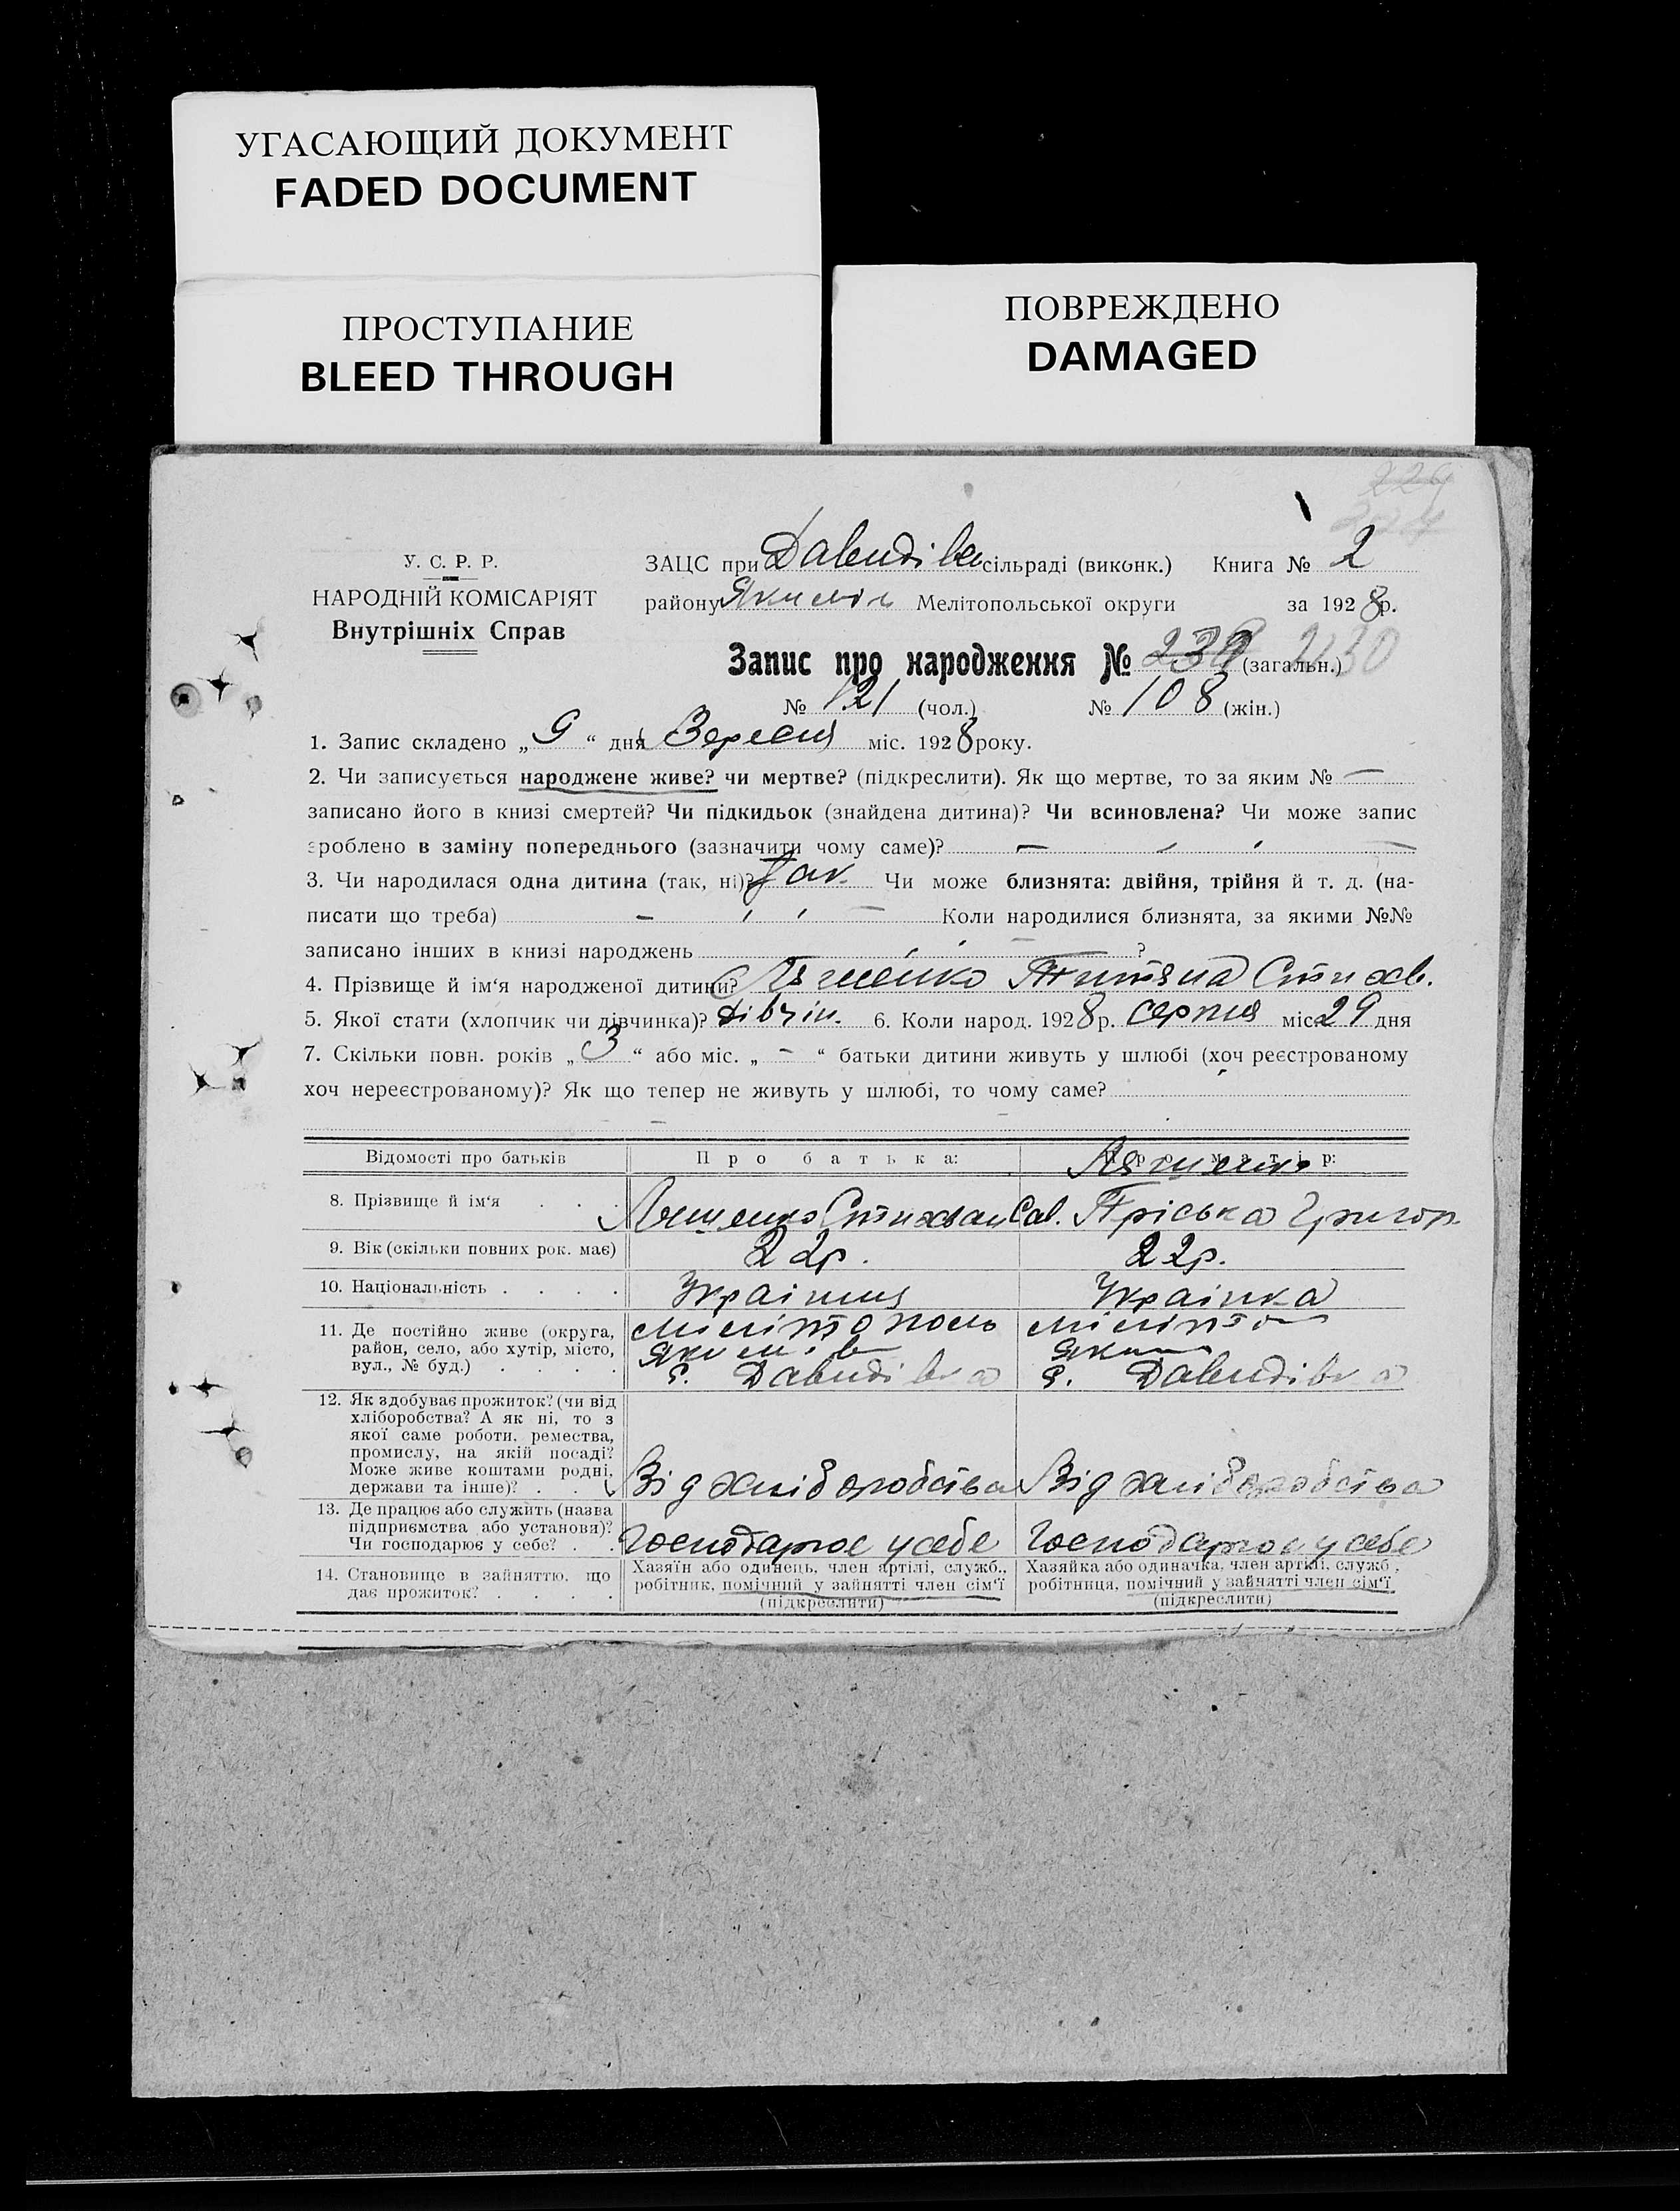 УГАСАЮЩИЙ ДОКУМЕНТ
FADED DOCUMENT
ПРОСТУПАНИЕ
BLEED THROUGH
ПОВРЕЖДЕНО
DAMAGED
У. С. Р. Р.
НАРОДНІЙ КОМІСАРІЯТ
Внутрішніх Справ
ЗАЦС при Давидівс сільраді (виконк.) Книга № 2
району Якимів Мелітопольської округи за 1928 р.
Запис про народження № (загальн.) 230
№ 121 (чол.) № 108 (жін.)
1. Запис складено „ 9 “ дня Вересня міс. 1928 року.
2. Чи записується народжене живе? чи мертве? (підкреслити). Як що мертве, то за яким № —
записано його в книзі смертей? Чи підкидьок (знайдена дитина)? Чи всиновлена? Чи може запис
зроблено в заміну попереднього (зазначити чому саме)?
3. Чи народилася одна дитина (так, ні)? Так. Чи може близнята: двійня, трійня й т. д. (на-
писати що треба) Коли народилися близнята, за якими №№
записано інших в книзі народжень ?
4. Прізвище й ім‘я народженої дитини? Лященко Титяна Стихв.
5. Якої стати (хлопчик чи дівчинка)? Дівчін. 6. Коли народ. 1928 р. серпня міс. 29 дня
7. Скільки повн. років „ 3 “ або міс. „ - “ батьки дитини живуть у шлюбі (хоч реєстрованому
хоч нереєстрованому)? Як що тепер не живуть у шлюбі, то чому саме?
Відомості про батьків Про батька: Про матір:
Лященко
8. Прізвище й ім‘я Лященко Сав. Пріська Григор.
9. Вік (скільки повних рок. має) 22р. 22р.
10. Національність Українця Українка
11. Де постійно живе (округа,
район, село, або хутір, місто,
вул., № буд.)
Мілітополь
Якимів
с. Давидівка
Мілітоп
Яким
с. Давидівка
12. Як здобуває прожиток? (чи від
хліборобства? А як ні, то з
якої саме роботи, ремества,
промислу, на якій посаді?
Може живе коштами родні,
держави та інше)?
Від хліборобства Від хліборобства
13. Де працює або служить (назва
підприємства або установи)?
Чи господарює у себе?
Господарює у себе Господарює у себе
14. Становище в зайняттю, що
дає прожиток?
Хазяїн або одинець, член артілі, служб.,
робітник, помічний у зайнятті член сім‘ї
(підкреслити)
Хазяйка або одиначка, член артілі, служб.,
робітниця, помічний у зайнятті член сім‘ї
(підкреслити)